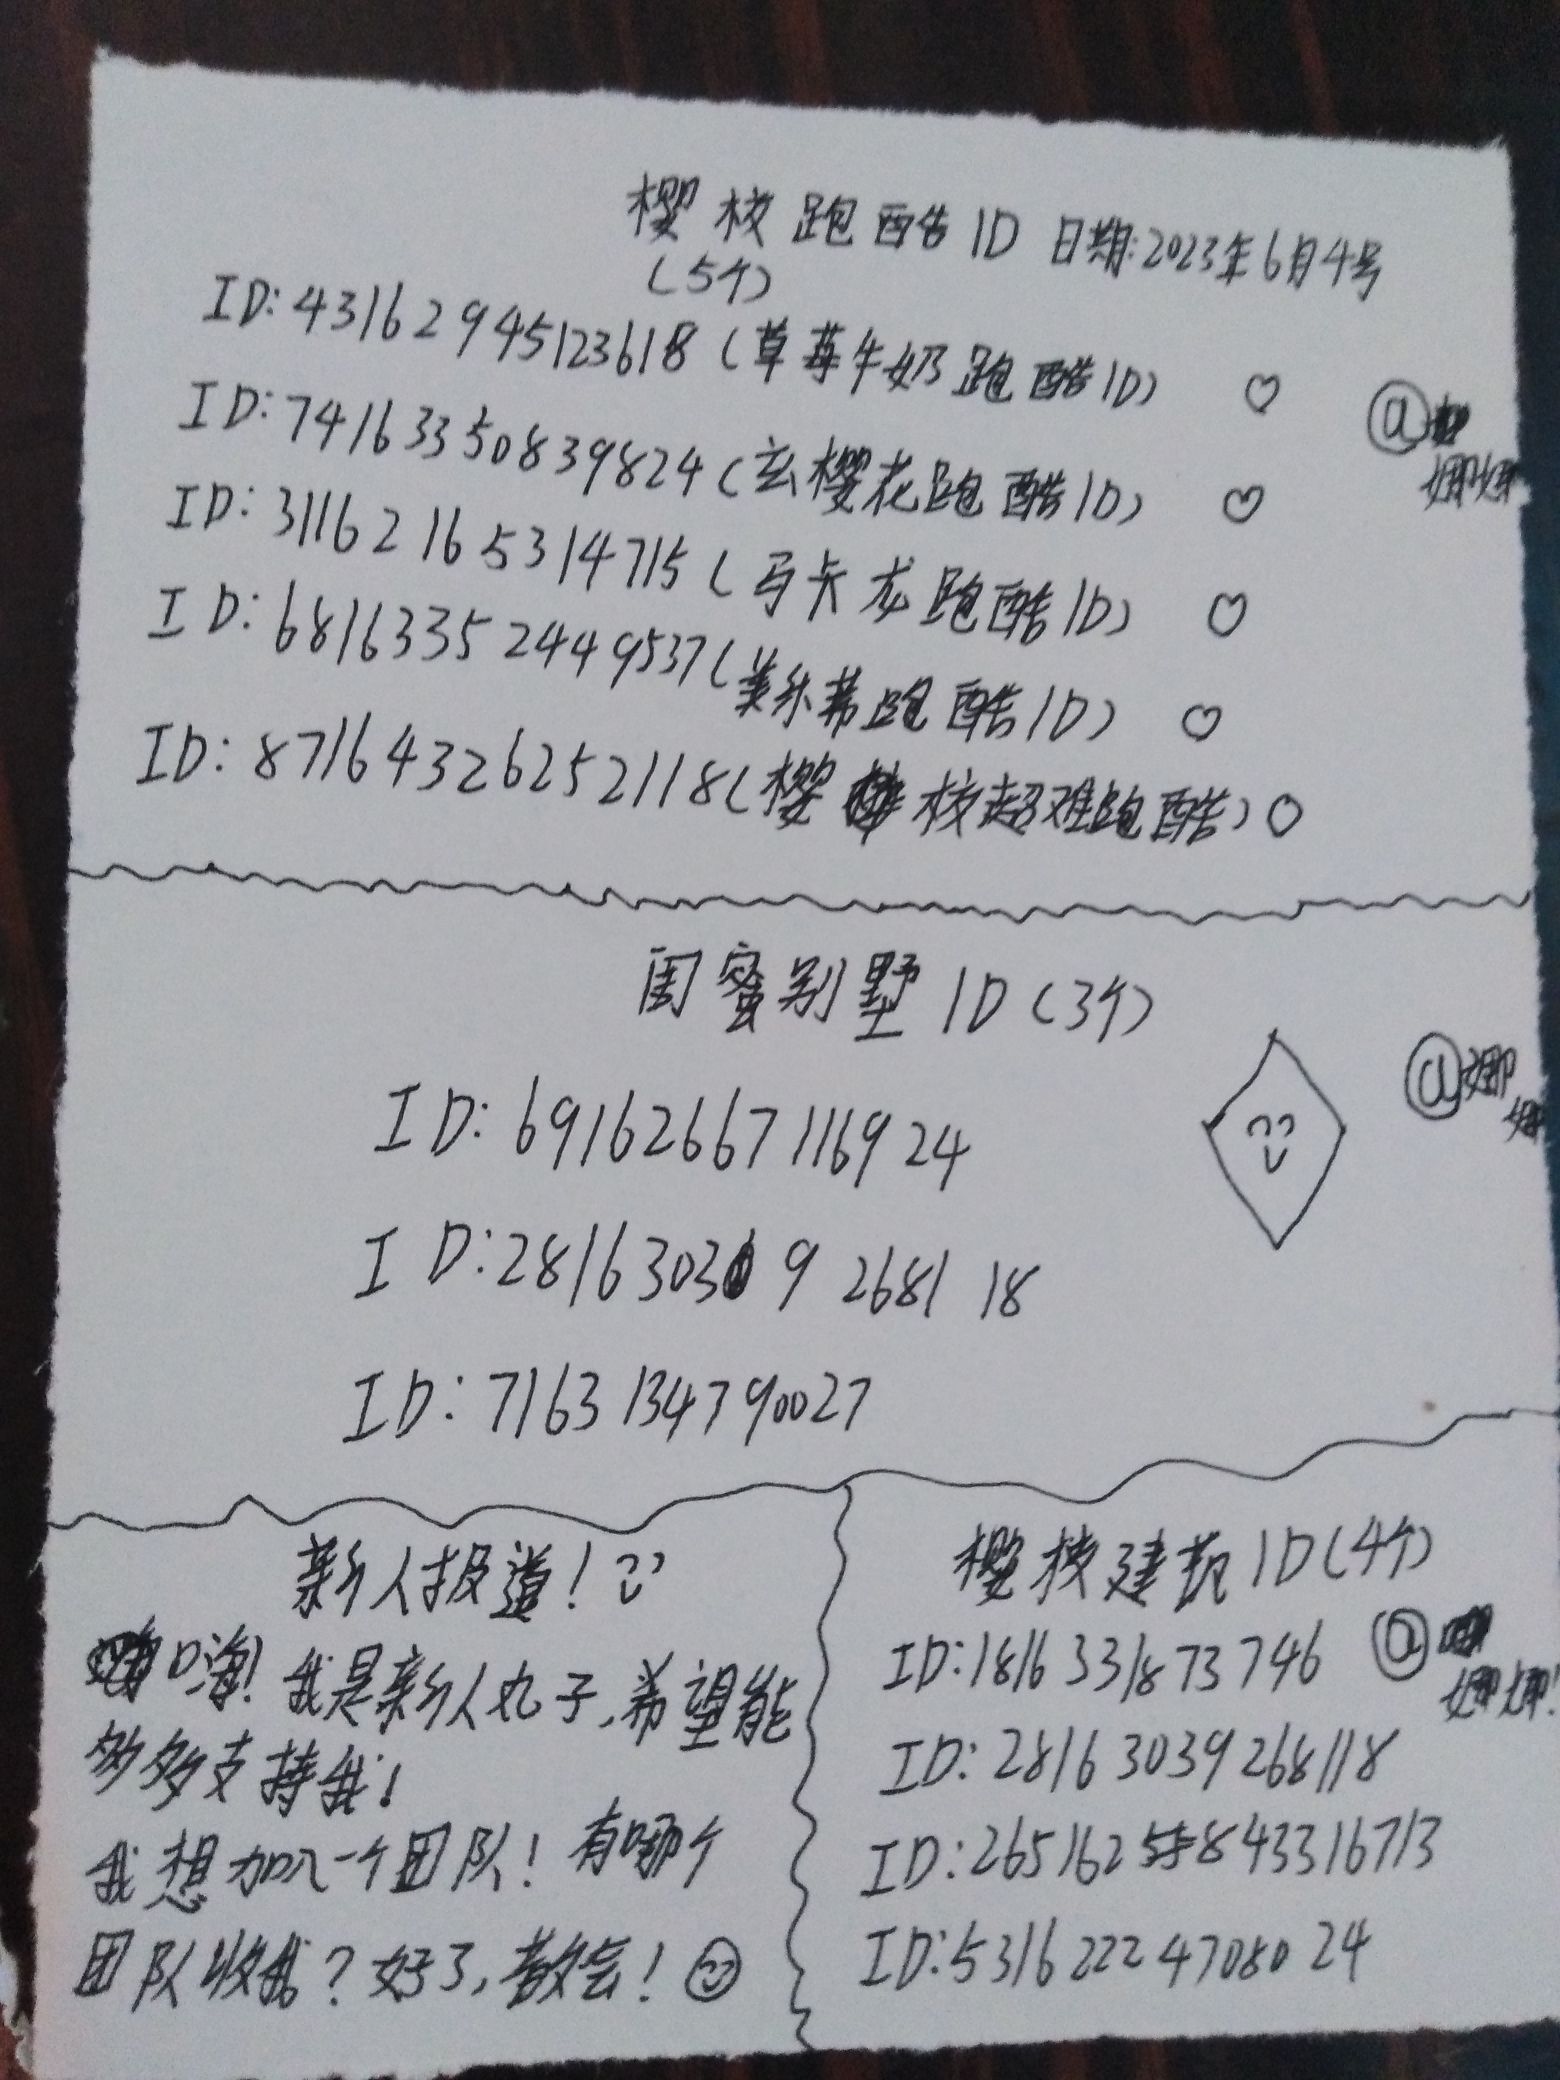 樱校跑酷ID 日期:2023年6月4号
(5个)
ID:43162945123618(草莓牛奶跑酷ID)
@
娜娜
ID:74163350839824(玄樱花跑酷ID)
ID:31162165314715(马卡龙跑酷ID)
ID:68163352449537(美乐蒂跑酷ID)
ID:87164326252118(樱校超难跑酷)
闺蜜别墅ID(3个)
@娜
娜
ID:69162667116924
ID:28163039268118
ID:7163134790027
新人报道!
嗨!我是新人丸子,希望能
多多支持我!
我想加入一个团队!有哪个
团队收我?好了,散会!
樱校建筑ID(4个)
ID:1816331873746
@
娜娜!
ID:28163039268118
ID:265162 843316713
ID:53162224708024